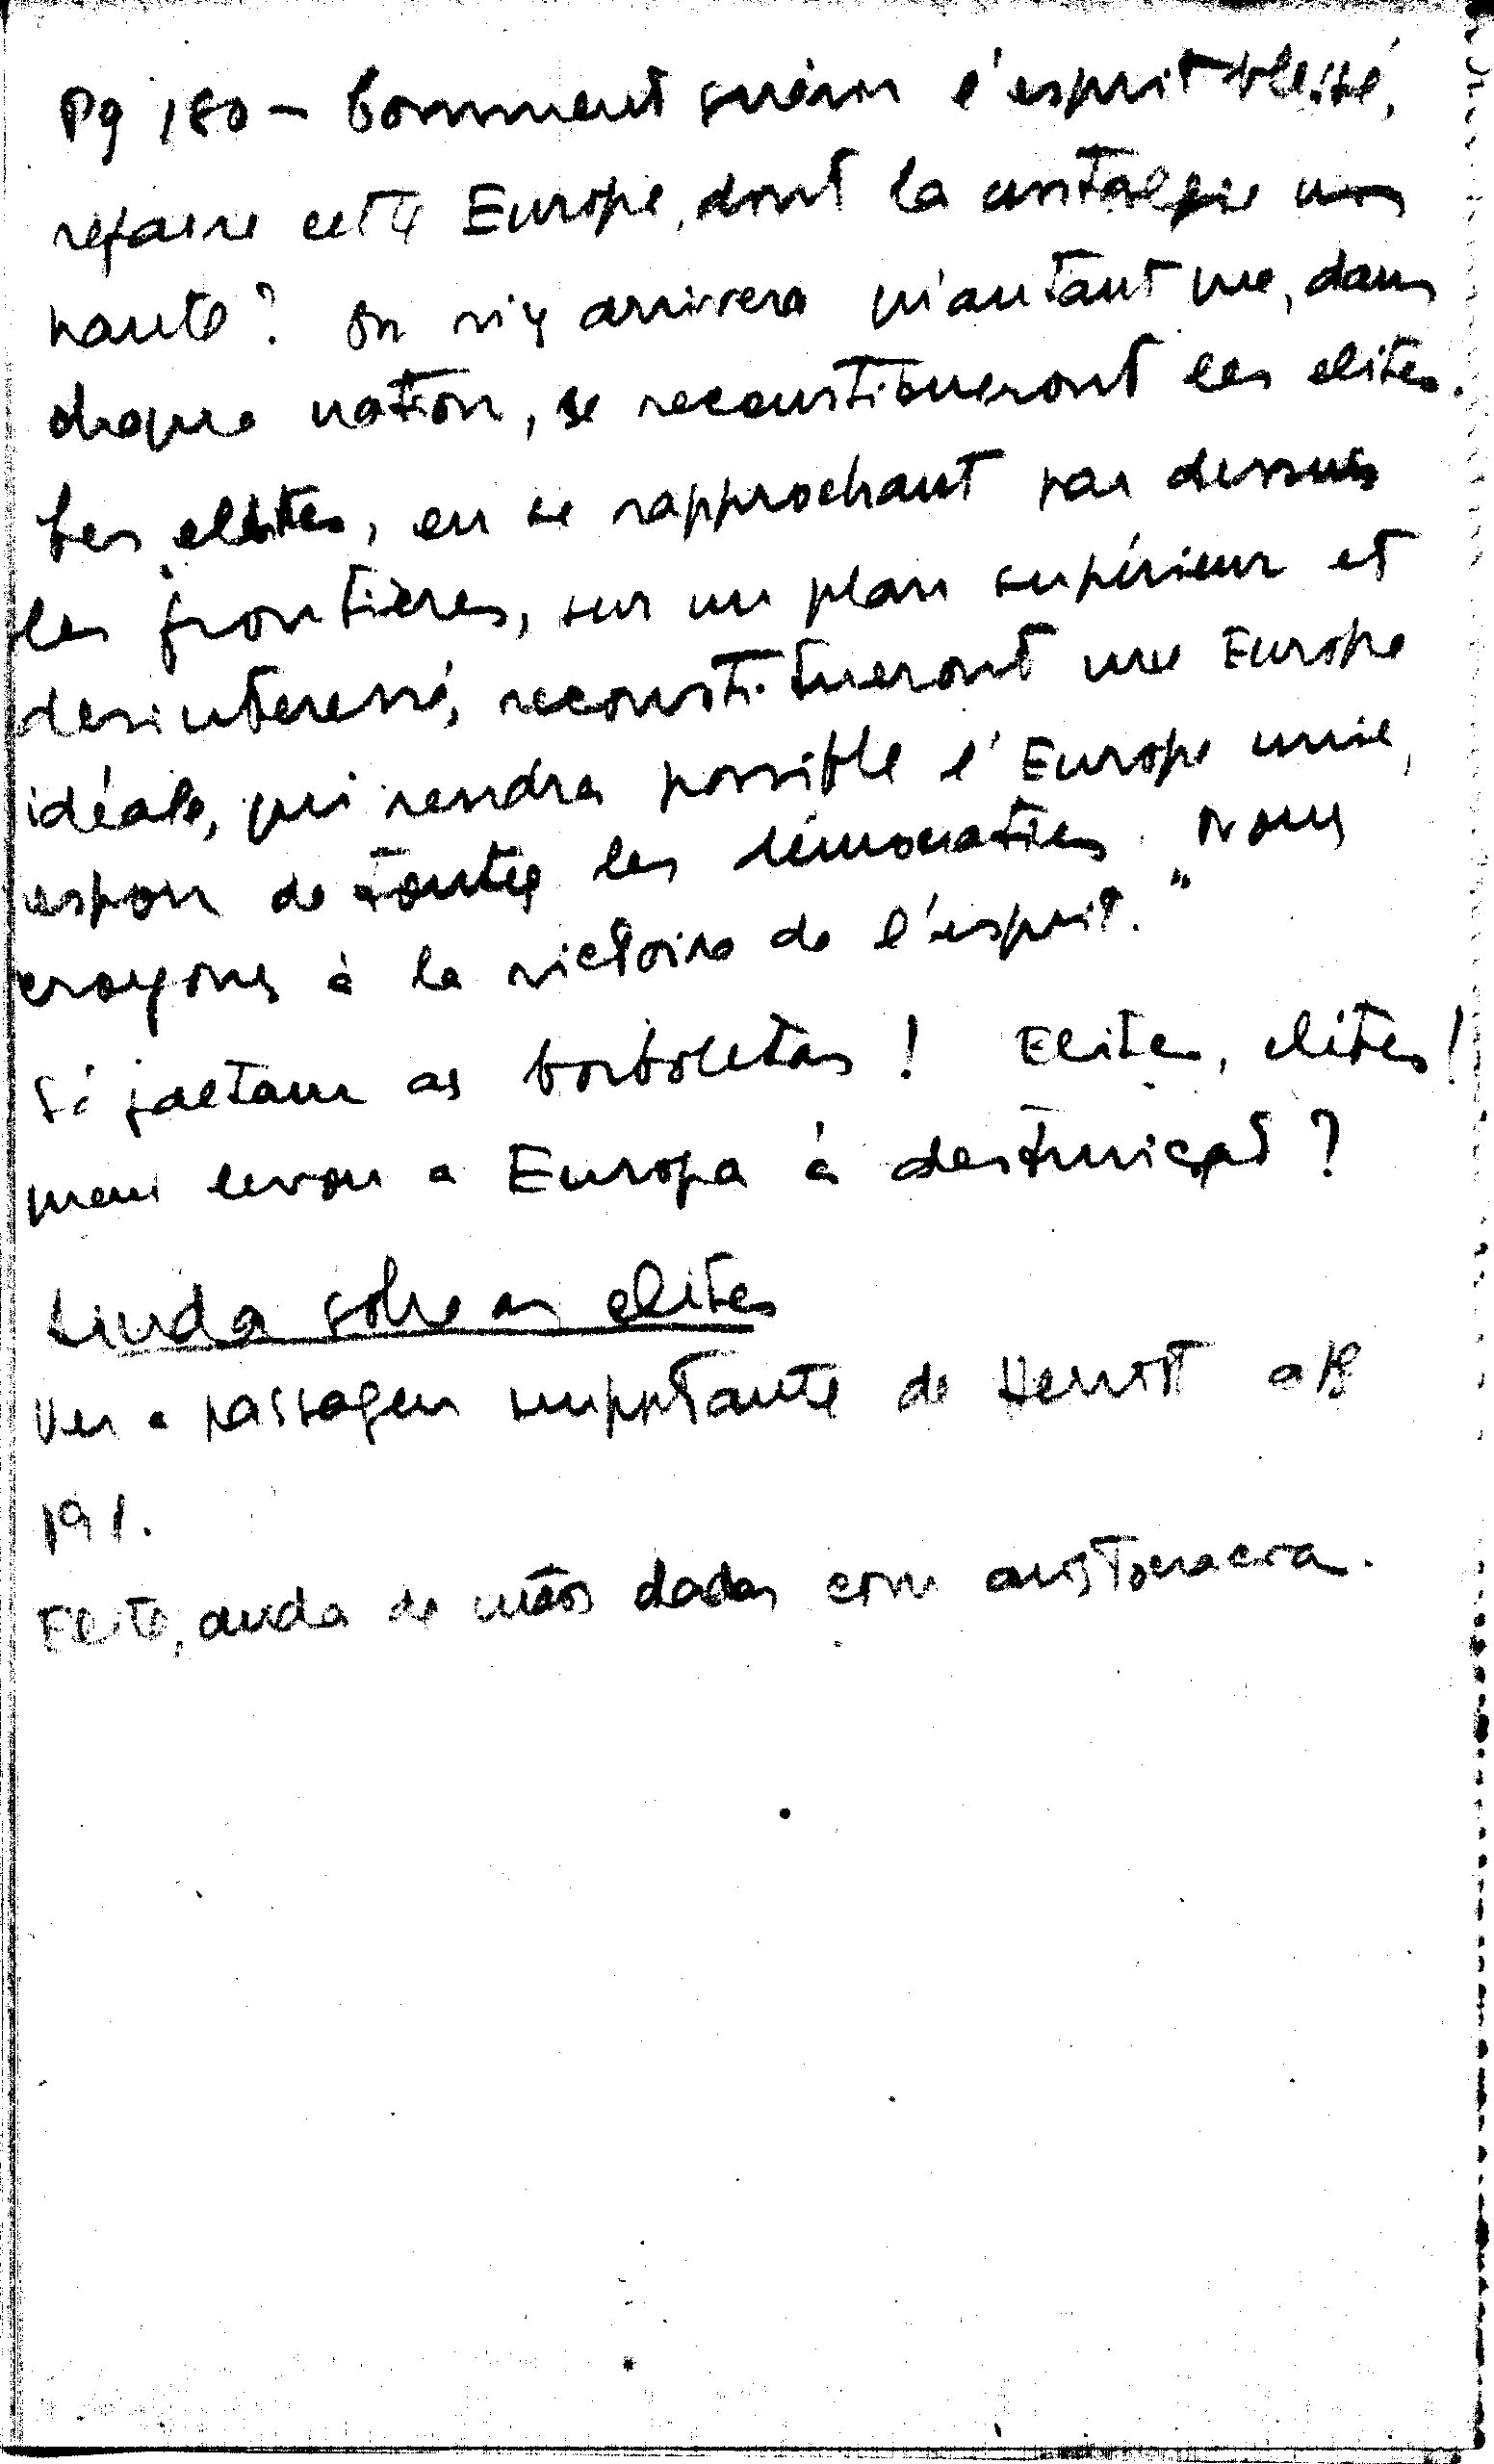 Pg 180 – Comment guérir l'esprit blessé,
refaire cette Europe, dont la nostalgie nous
hante? On n'y arrivera qu'autant que, dans
chaque nation, se reconstitueront les elites.
Les elites, en se rapprochant par dessus
les frontières, sur un plan supérieur et
desinteressé, reconstitueront une Europe
idéale, qui rendra possible l'Europe unie,
espoir de toutes les démocraties. Nous
croyons à la victoire de l'esprit."
Só faltam as borboletas! Elites, elites!
quem levou a Europa à destruição?
Linda sobre as elites
Ver a passagem importante de Herriot a pg
191.
Elite, anda de mãos dadas com aristocracia.